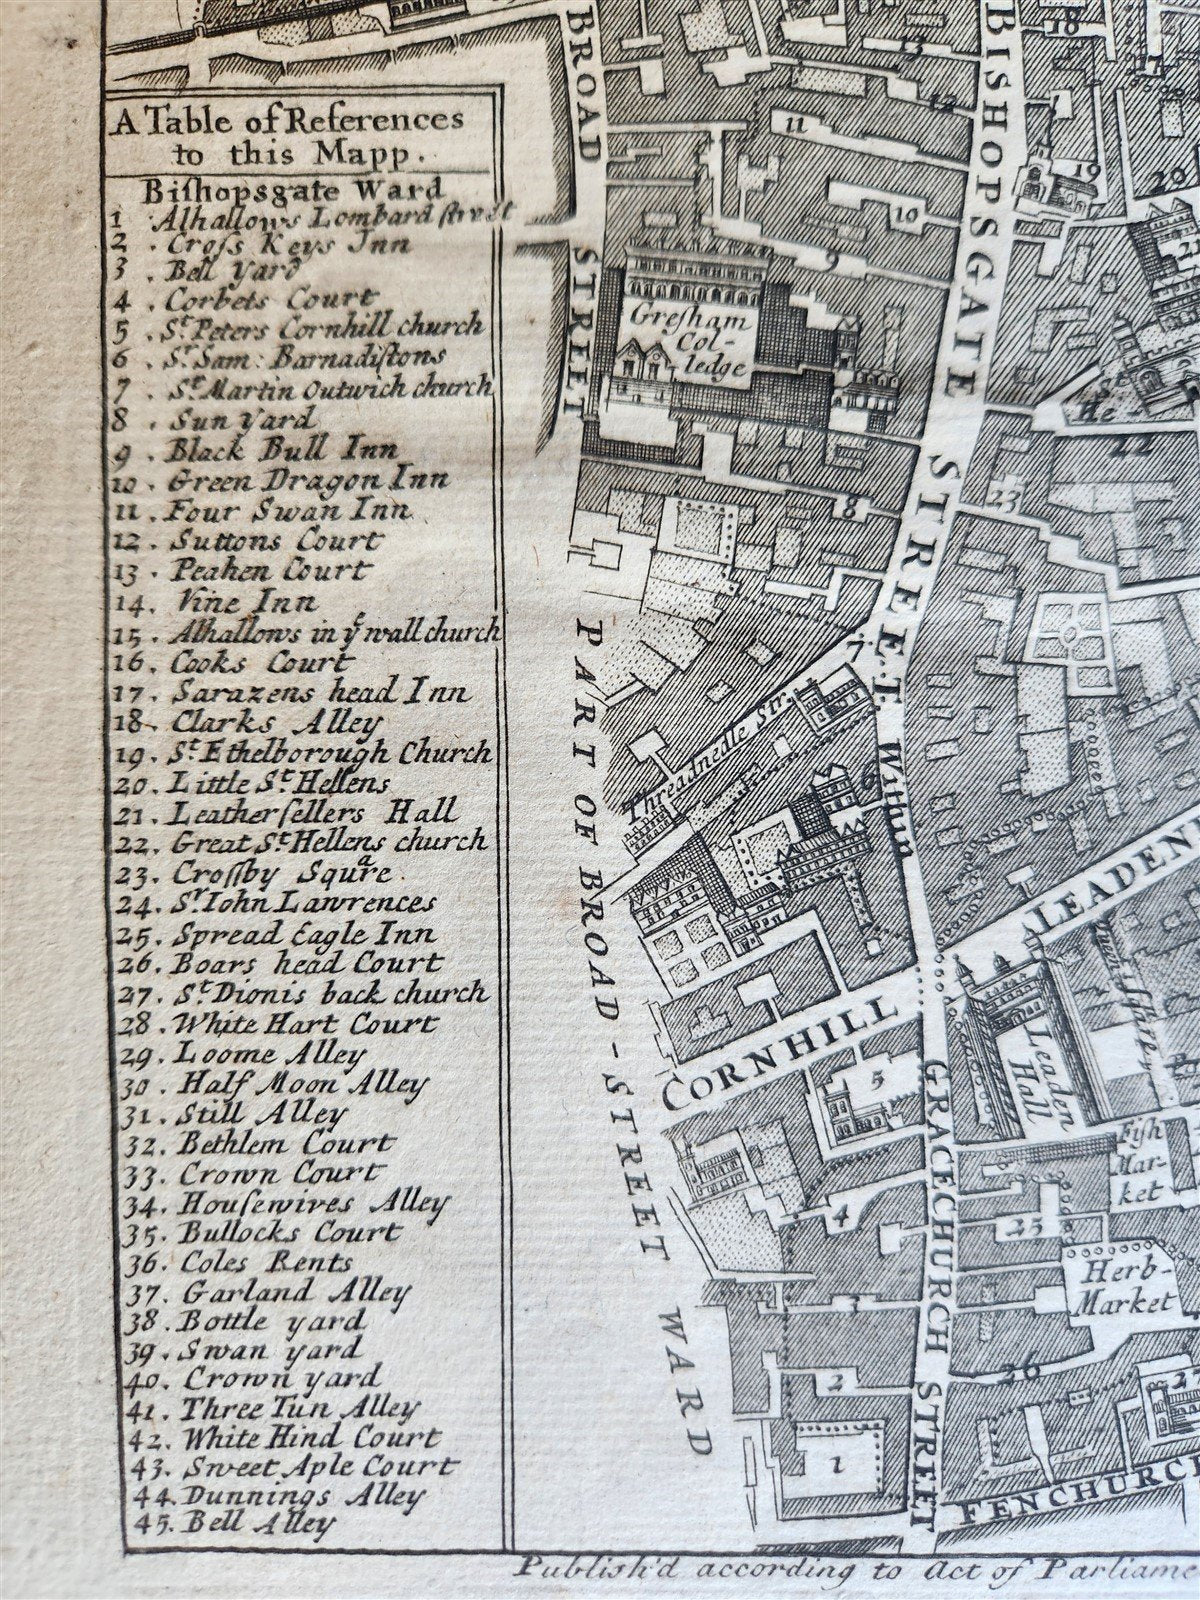 A Table of References
to this Mapp.
Biſhopsgate Ward
1 . Alhallows Lombard ſtreet
2 . Croſs Keys Inn
3 . Bell Yard
4 . Corbets Court
5 . St. Peters Cornhill church
6 . Sr. Sam: Barnadiſtons
7 . St. Martin Outwich church
8 . Sun Yard
9 . Black Bull Inn
10 . Green Dragon Inn
11 . Four Swan Inn
12 . Suttons Court
13 . Peahen Court
14 . Vine Inn
15 . Alhallows in ye wall church
16 . Cooks Court
17 . Sarazens head Inn
18 . Clarks Alley
19 . St. Ethelborough Church
20 . Little St. Hellens
21 . Leatherſellers Hall
22 . Great St. Hellens church
23 . Croſſby Square
24 . Sr. Iohn Lawrences
25 . Spread Eagle Inn
26 . Boars head Court
27 . St. Dionis back church
28 . White Hart Court
29 . Loome Alley
30 . Half Moon Alley
31 . Still Alley
32 . Bethlem Court
33 . Crown Court
34 . Houſewives Alley
35 . Bullocks Court
36 . Coles Rents
37 . Garland Alley
38 . Bottle yard
39 . Swan yard
40 . Crown yard
41 . Three Tun Alley
42 . White Hind Court
43 . Sweet Aple Court
44 . Dunnings Alley
45 . Bell Alley
BROAD STREET
BISHOPSGATE STREET Within
18
13
17
12
11
19
20
10
21
9
Greſham
Col-
ledge
He-
22
23
8
7
PART OF BROAD-STREET WARD
Threadnedle Str.
6
LEADEN
CORNHILL
Leaden
Hall
5
GRACECHURCH STREET
Fiſh
Mar-
ket
4
25
Herb-
Market
3
26
2
1
FENCHURCH
Publiſh'd according to Act of Parliame